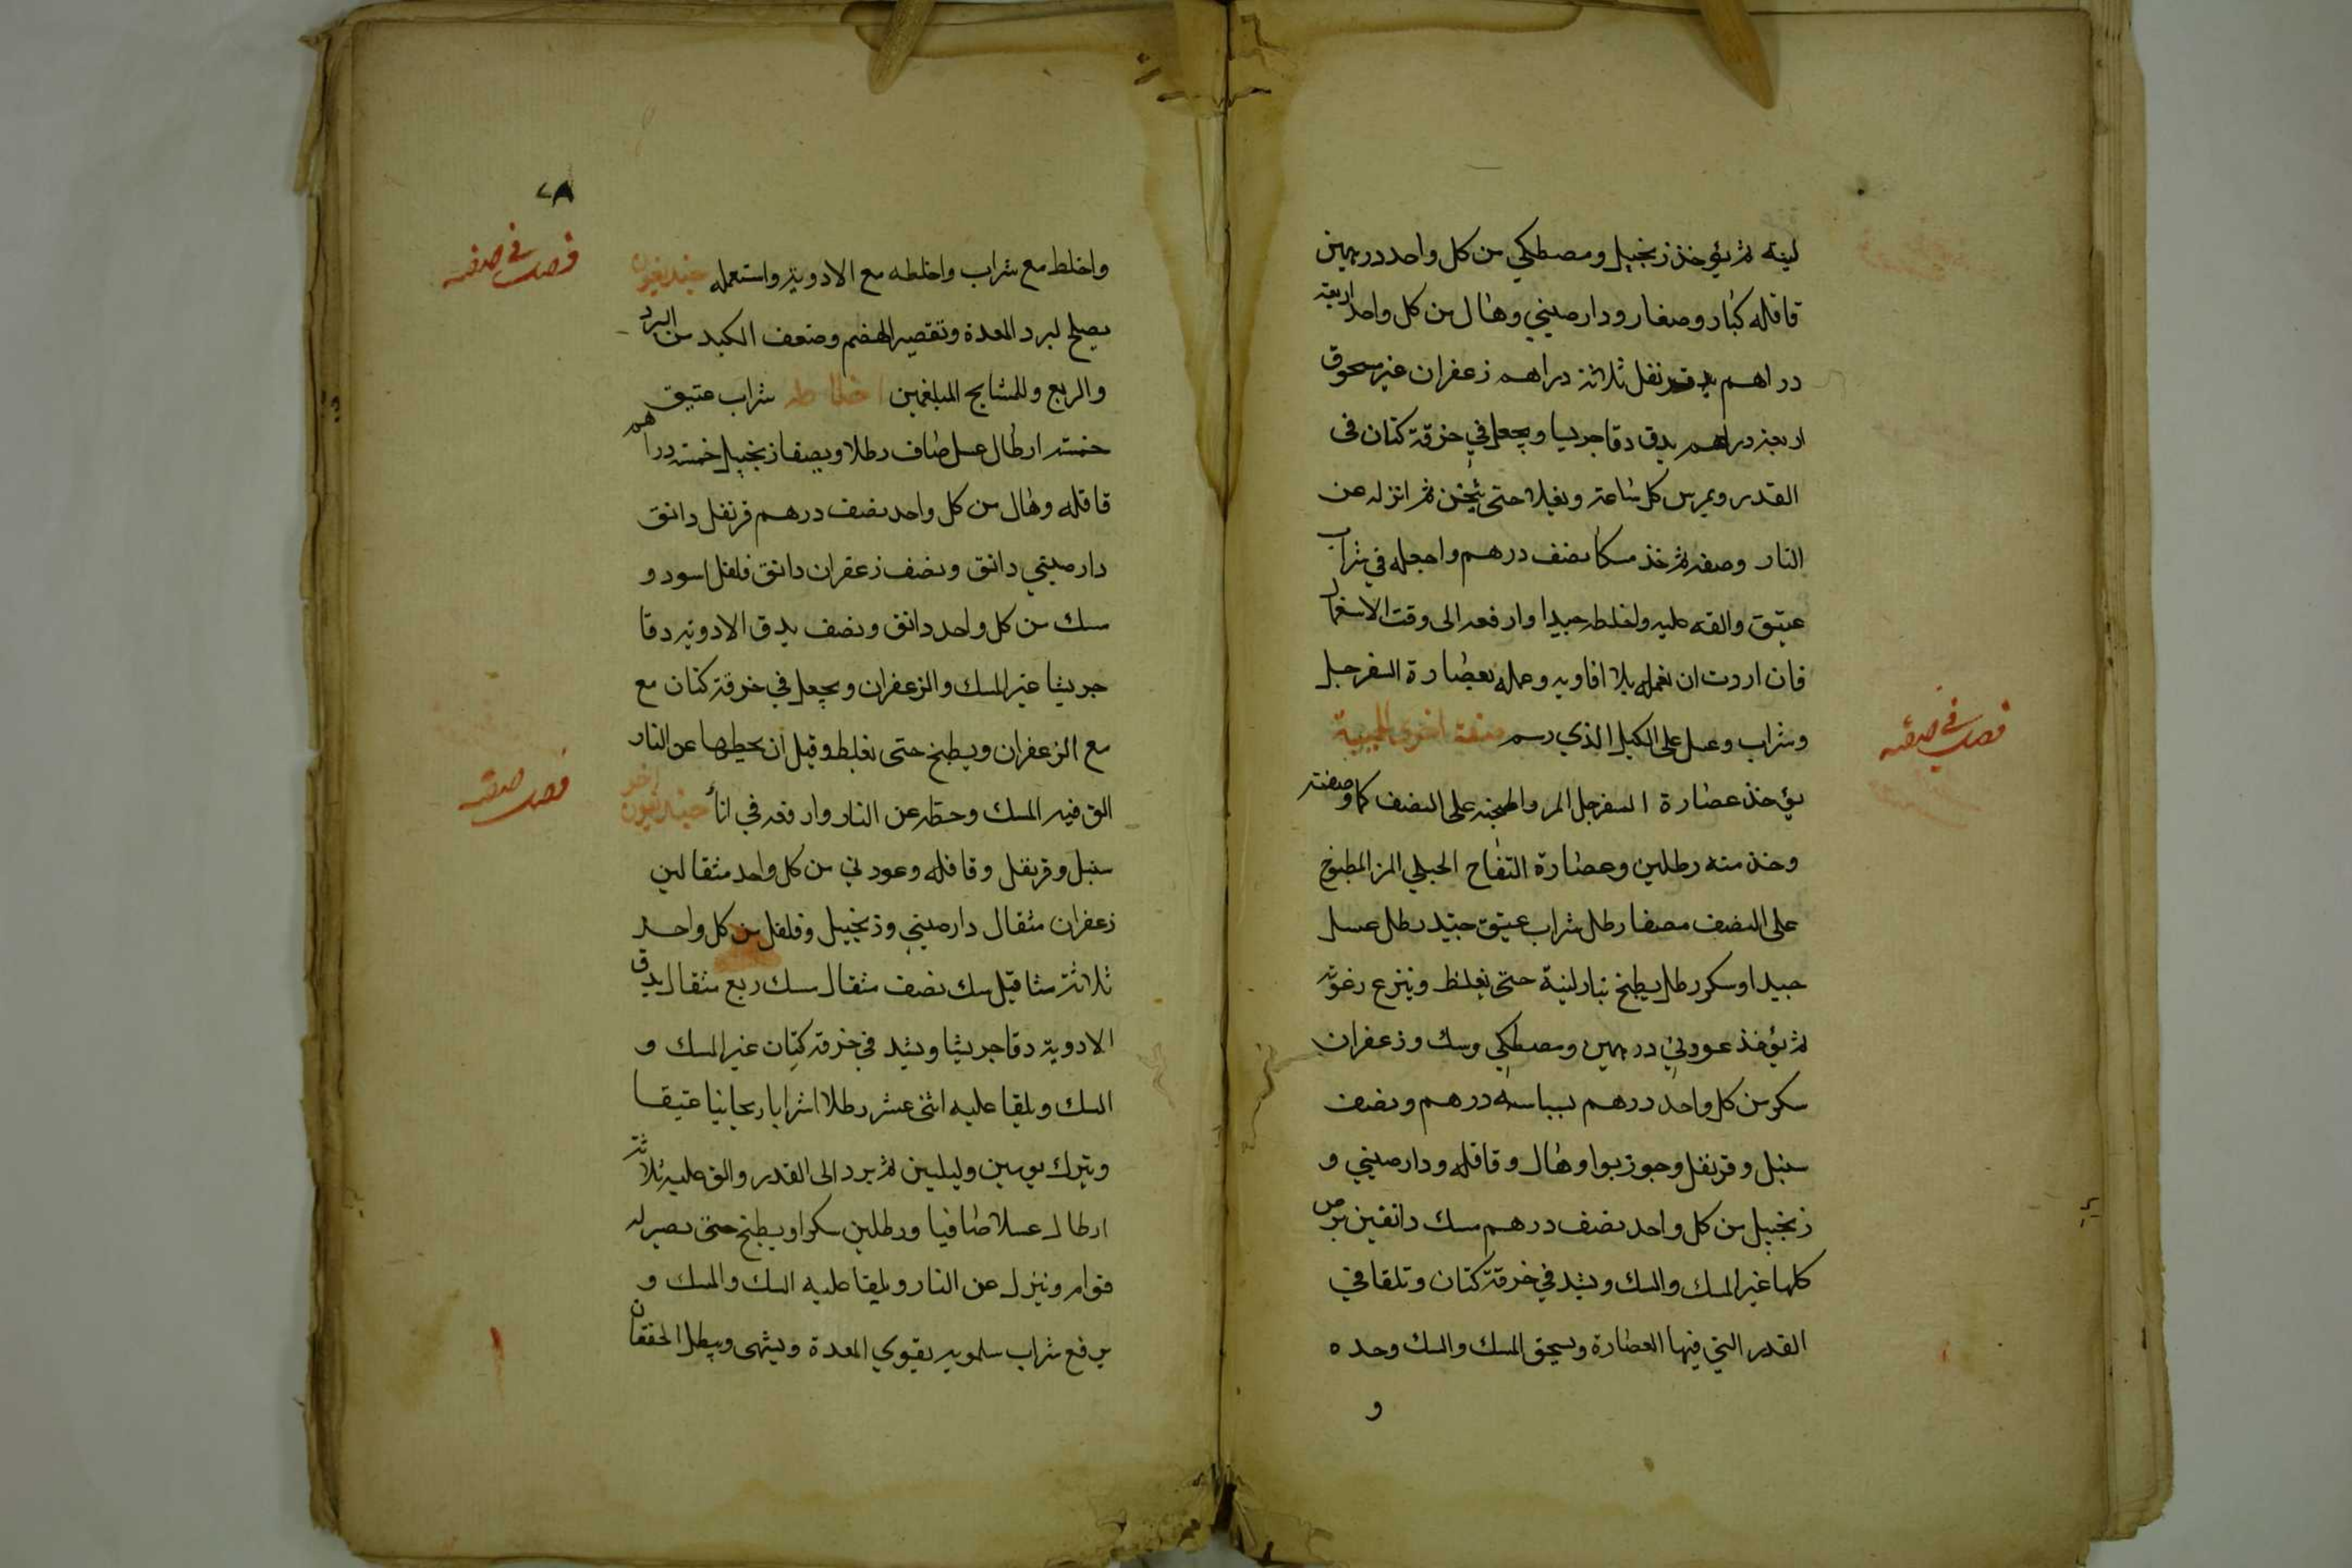 لينه ثم يؤخذ زنجبيل ومصطكي من كل واحد درهمين
قاقله كبار وصغار ودارصيني وهال من كل واحد اربعة
دراهم قرنفل ثلاثة دراهم زعفران غير مسحوق
اربعة دراهم يدق دقا جريسا ويجعل في خرقة كتان في
القدر ويمرس كل ساعة ويغلا حتى يثخن ثم انزله عن
النار وصفه ثم خذ مسكا نصف درهم واجعله في شراب
عتيق والقه عليه واخلطه جيدا وارفعه الى وقت الاستعمال
فان اردت ان تعمله بلا افاويه وعمله بعصارة السفرجل
وشراب وعسل على الكيل الذي رسم صفة اخرى للميبة
فصل في صفة
يؤخذ عصارة السفرجل المر واطبخه على النصف كما وصفته
وخذ منه رطلين وعصارة التفاح الجبلي المز المطبوخ
على النصف مصفا رطل شراب عتيق جيد رطل عسل
جيد او سكر رطل يطبخ بنار لينة حتى يغلظ وينزع رغوته
ثم يؤخذ عود ني درهمين ومصطكي وسك وزعفران
سكر من كل واحد درهم بسباسه درهم ونصف
سنبل وقرنفل وجوز بوا وهال وقاقله ودارصيني و
زنجبيل من كل واحد نصف درهم مسك دانقين يرض
كلها غير المسك والسك ويشد في خرقة كتان وتلقا في
القدر التي فيها العصارة ويسحق المسك والسك وحده
و
٢٨
واخلط مع شراب واخلطه مع الادوية واستعمله خنديقون
فصل في صفة
يصلح لبرد المعدة وتقصير الهضم وضعف الكبد من البرد
والريح وللمشايخ المبلغمين اخلاطه شراب عتيق
خمسة ارطال عسل صاف رطلا ويصفا زنجبيل خمسة دراهم
قاقله وهال من كل واحد نصف درهم قرنفل دانق
دارصيني دانق ونصف زعفران دانق فلفل اسود و
سك من كل واحد دانق ونصف يدق الادوية دقا
جريشا غير المسك والزعفران ويجعل في خرقة كتان مع
مع الزعفران ويطبخ حتى يغلظ وقبل ان يحطها عن النار
الق فيه المسك وحطه عن النار وارفعه في اناء خنديقون اخر
فصل صفة
سنبل وقرنفل وقاقله وعود ني من كل واحد مثقالين
زعفران مثقال دارصيني وزنجبيل وفلفل من كل واحد
ثلاثة مثاقيل سك نصف مثقال مسك ربع مثقال يدق
الادوية دقا جريشا ويشد في خرقة كتان غير المسك و
السك ويلقا عليه اثنى عشر رطلا شرابا ريحانيا عتيقا
ويترك يومين وليلتين ثم يرد الى القدر والق عليه ثلاثة
ارطال عسلا صافيا ورطلين سكرا ويطبخ حتى يصير له
قوام وينزل عن النار ويلقا عليه السك والمسك و
يرفع شراب سلمويه يقوي المعدة ويشهى ويبطل الخفقان